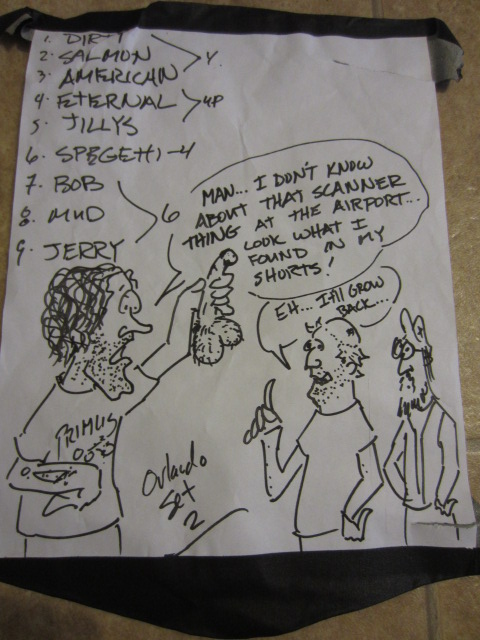 1. DIRTY
2. SALMON
3. AMERICAN
Y
4. ETERNAL
5. JILLYS
4P
6. SPEGETTI-4
7. BOB
8. MUD
9. JERRY
6
MAN... I DON'T KNOW
ABOUT THAT SCANNER
THING AT THE AIRPORT...
LOOK WHAT I
FOUND IN MY
SHORTS!
EH... I'll GROW
BACK...
PRIMUS
Orlando
Set
2